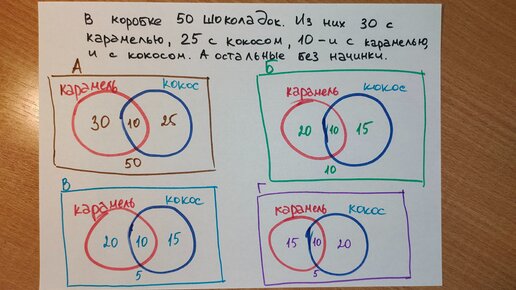 В коробке 50 шоколадок. Из них 30 с
карамелью, 25 с кокосом, 10-и с карамелью,
и с кокосом. А остальные без начинки.
А
карамель кокос
30 10 25
50
Б
карамель кокос
20 10 15
10
В
карамель кокос
20 10 15
5
Г
карамель кокос
15 10 20
5